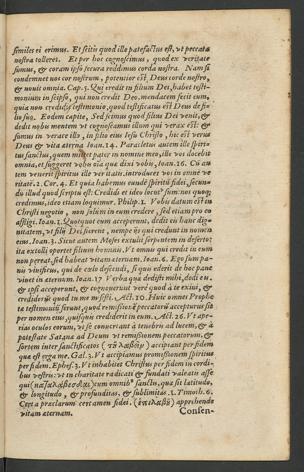 similes ei erimus. Et scitis quod ille patefactus est, vt peccata
nostra tolleret. Et per hoc cognoscimus, quod ex veritate
sumus, & coram ipso secura reddimus corda nostra. Nam si
condemnet nos cor nostrum, potentior est Deus corde nostro,
& nouit omnia. Cap. 5. Qui credit in filium Dei, habet testi-
monium in seipso, qui non credit Deo, mendacem fecit eum,
quia non credidit testimonio, quod testificatus est Deus de fi-
lio suo. Eodem capite, Sed scimus quod filius Dei venit, &
dedit nobis mentem vt cognoscamus illum qui verax est: &
sumus in verace illo, in filio eius Iesu Christo, hic est verus
Deus & vita æterna Ioan. 14. Paracletus autem ille spiri-
tus sanctus, quem mittet pater in nomine meo, ille vos docebit
omnia, et suggeret vobis omnia quæ dixi vobis, Ioan. 16. Cum au
tem venerit spiritus ille veritatis, introducet vos in omnem ve
ritatem. 2. Cor. 4. Et quia habemus eundem spiritum fidei, secun-
dum illud quod scriptum est: Credidi et ideo locutus sum: nos quoque
credimus, ideo etiam loquimur. Philip. 1. Vobis datum est in
Christi negotio, non solum in eum credere, sed etiam pro eo
affligi. Ioan. 1. Quotquot eum acceperunt, dedit eis hanc dig-
nitatem, vt filii Dei fierent, nempe iis qui credunt in nomen
eius. Ioan. 3. Sicut autem Moses extulit serpentem in deserto:
ita extolli oportet filium hominis. Vt omnis qui credit in eum
non pereat, sed habeat vitam æternam. Ioan. 6. Ego sum pa-
nis viuificus, qui de cælo descendi, si quis ederit de hoc pane
viuet in æternum. Ioan. 17. Verba quæ dedisti mihi, dedi eis,
& ipsi acceperunt, & cognouerunt vere quod a te exiui, &
crediderunt quod tu me misisti. Act. 10. Huic omnes Prophe
tæ testimonium ferunt, quod remissionem peccatorum accepturus sit
per nomen eius, quisquis crediderit in eum. Act. 26. Vt ape-
rias oculos eorum, vt se conuertant a tenebris ad lucem, & a
potestate Satanæ ad Deum vt remissionem peccatorum, &
sortem inter sanctificatos (τοῦ λαβεῖν) accipiant per fidem
quæ est erga me. Gal. 3. Vt accipiamus promissionem spiritus
per fidem. Ephes. 3. Vt inhabitet Christus per fidem in cordi-
bus vestris: vt in charitate radicati & fundati valeatis asse
qui (καταλαβέσθαι) cum omnibus sanctis, quæ sit latitudo,
& longitudo, & profunditas, & sublimitas. 1. Timoth. 6.
Certa præclarum certamen fidei. (ἐπιλαβοῦ) apprehende
vitam æternam.
Consen-